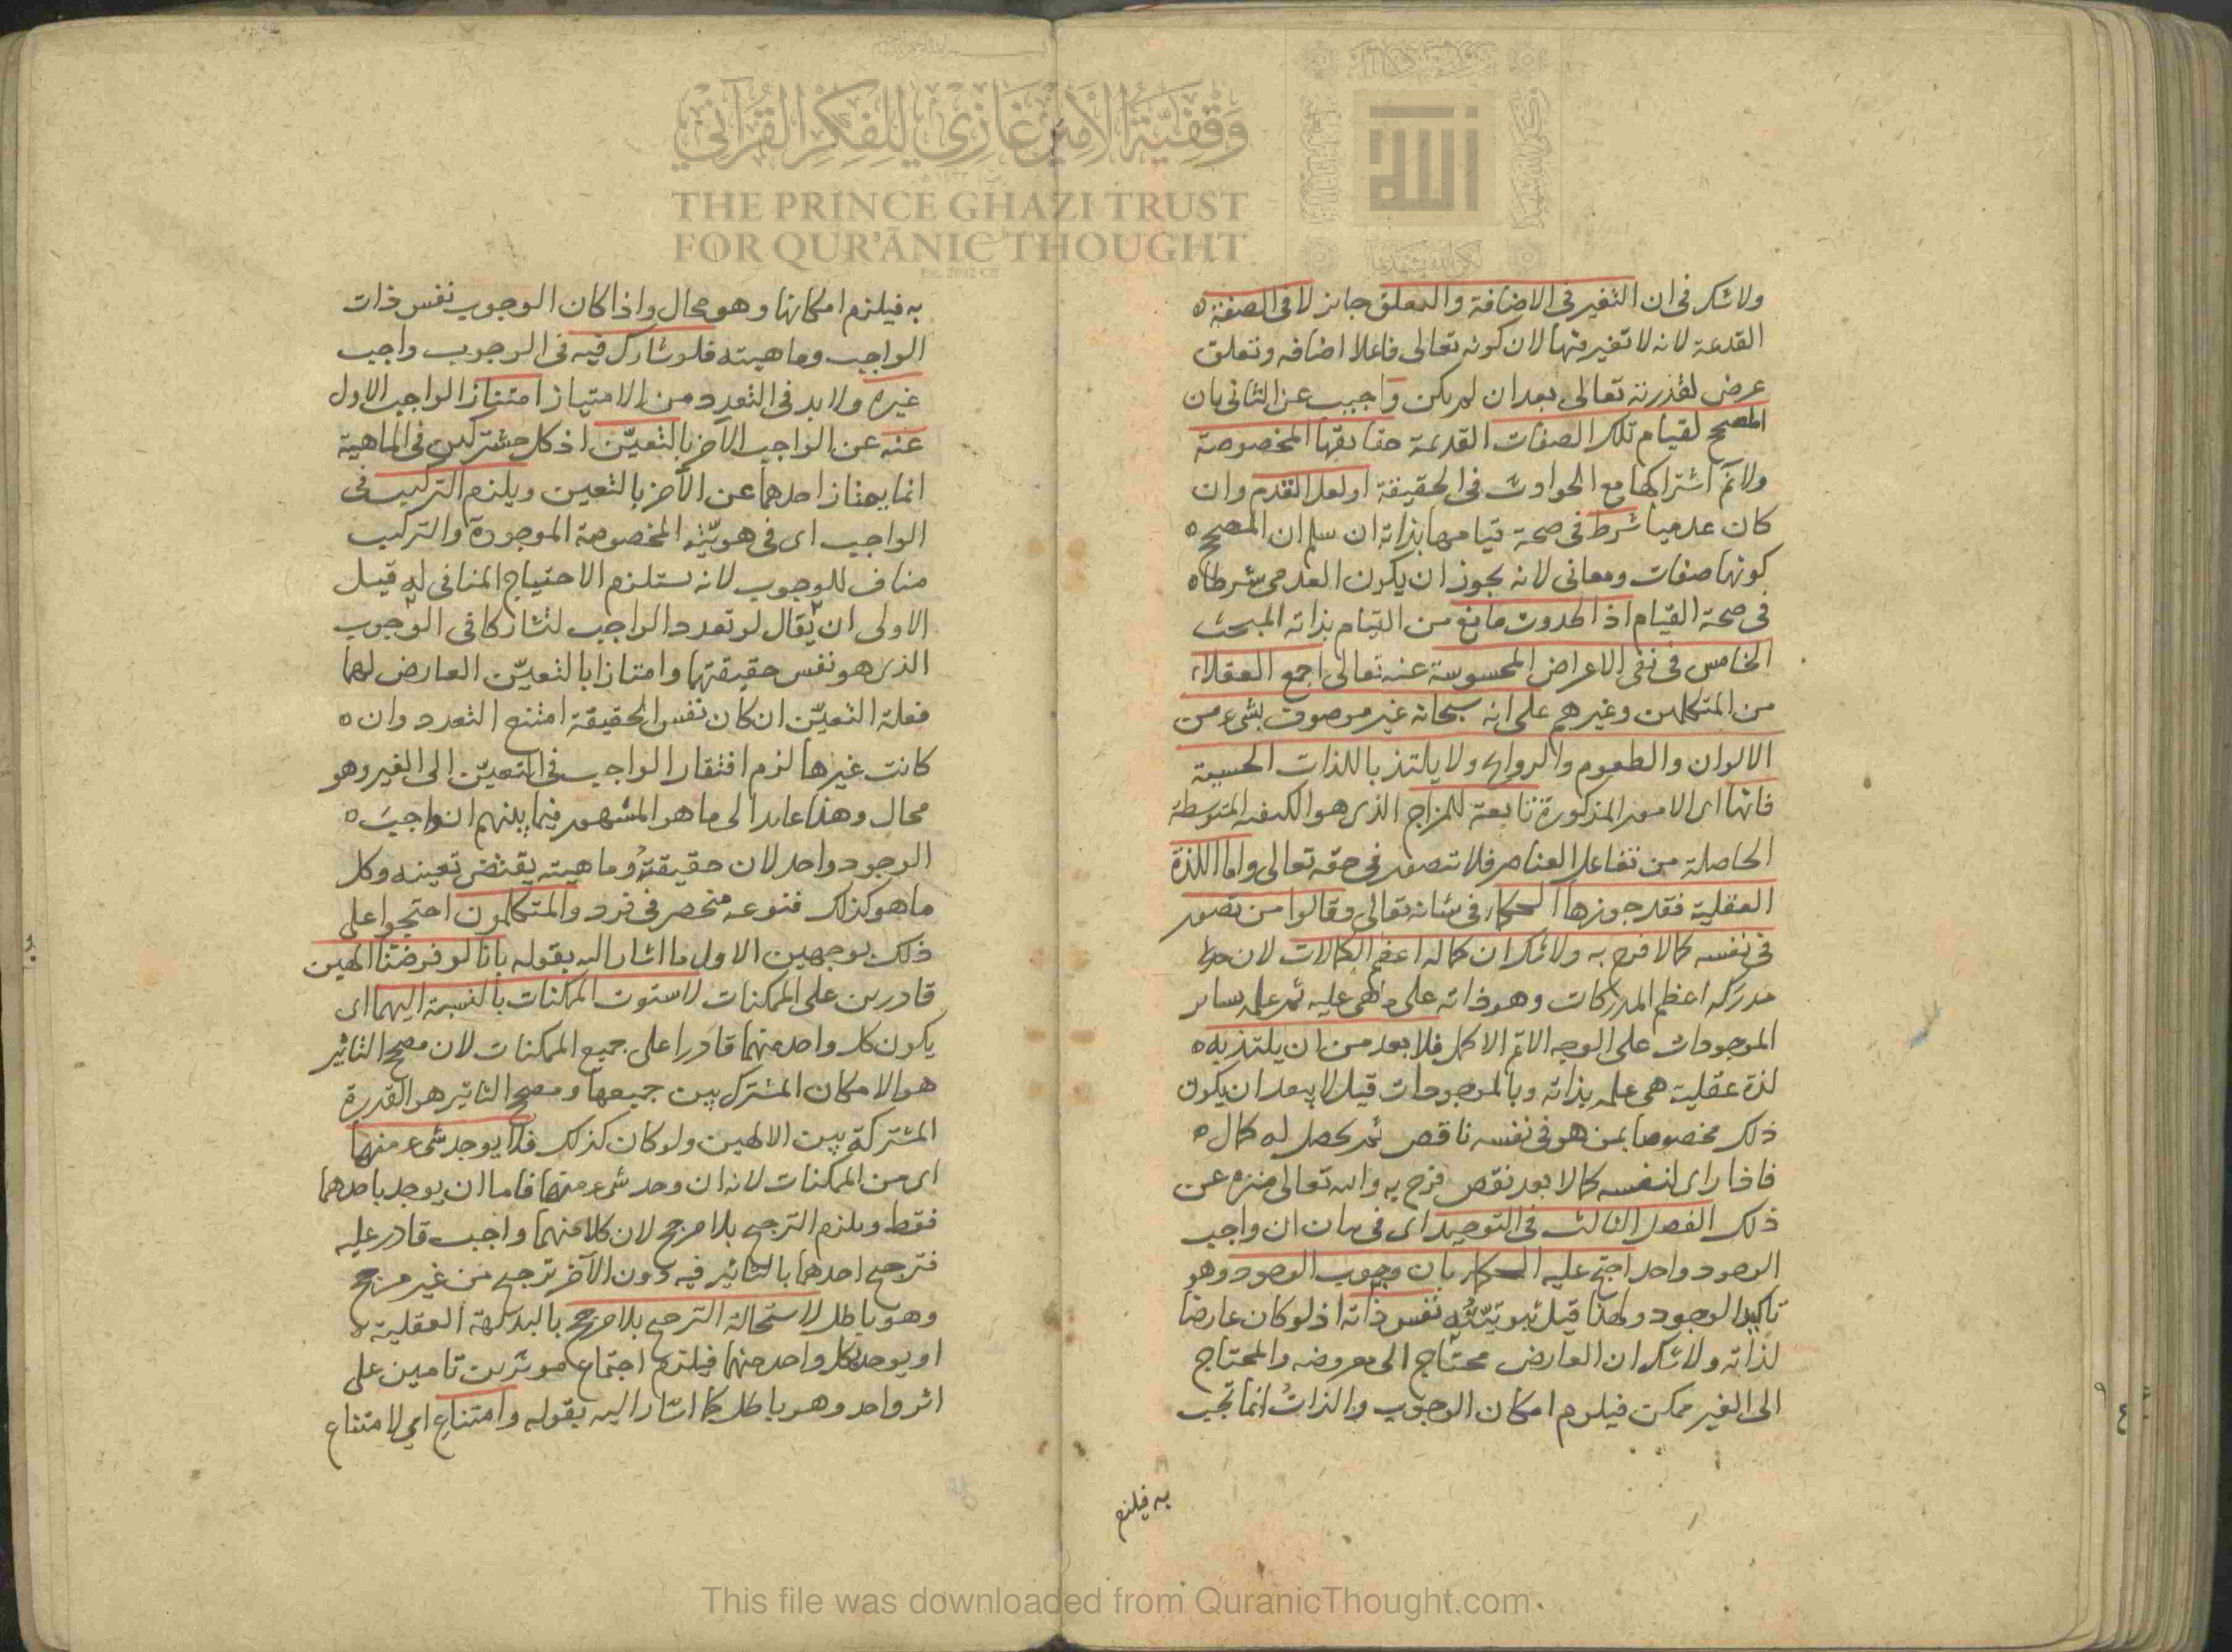 وقفية الأمير غازي للفكر القرآني
THE PRINCE GHAZI TRUST
FOR QUR'ĀNIC THOUGHT
Est. 2012 CE
الله
ولا شك في ان التغير في الاضافة والتعلق جايز لا في الصفة
القديمة لانه لا تغير فيها لان كونه تعالى فاعلا اضافه وتعلق
عرض لقدرته تعالى بعد ان لم يكن واجيب عن الثاني بان
المصحح لقيام تلك الصفات القديمة حقايقها المخصوصة
ولا تم اشتراكها مع الحوادث في الحقيقة او لعل القدم وان
كان عدميا شرط في صحة قيامها بذاته ان سلم ان المصحح
كونها صفات ومعاني لانه يجوز ان يكون العدمي شرطا
في صحة القيام اذ الحدوث مانع من القيام بذاته المبحث
الخامس في نفي الاعراض المحسوسة عنه تعالى اجمع العقلاء
من المتكلمين وغيرهم على انه سبحانه غير موصوف بشيء من
الالوان والطعوم والروايح ولا يلتذ باللذات الحسية
فانها اى الامور المذكورة تابعة للمزاج الذى هو الكيفية المتوسطة
الحاصلة من تفاعل العناصر فلا تتصور في حقه تعالى واما اللذة
العقلية فقد جوزها الحكماء في شانه تعالى وقالوا من تصور
في نفسه كمالا فرح به ولا شك ان كماله اعظم الكمالات لان
مدركه اعظم المدركات وهو ذاته على ما هي عليه ثم علمه بساير
الموجودات على الوجه الاتم الاكمل فلا بعد من ان يلتذ به
لذة عقلية هي علمه بذاته وبالموجودات قيل لا يبعد ان يكون
ذلك مخصوصا بمن هو في نفسه ناقص ثم يحصل له كمال
فاذا راى لنفسه كمالا بعد نقص فرح به والله تعالى منزه عن
ذلك الفصل الثالث في التوحيد اى في بيان ان واجب
الوجود واحد احتج عليه الحكماء بان وجوب الوجود وهو
تاكيد الوجود ولهذا قيل بثبوتيته نفس ذاته اذ لو كان عارضا
لذاته ولا شك ان العارض محتاج الى معروضه والمحتاج
الى الغير ممكن فيلزم امكان الوجوب والذات انما تجب
به فيلزم
به فيلزم امكانها وهو محال واذا كان الوجوب نفس ذات
الواجب وماهيته فلو شارك فيه في الوجوب واجب
غيره ولا بد في التعدد من الامتياز امتاز الواجب الاول
عنه عن الواجب الآخر بالتعيّن اذ كل مشتركين في الماهية
انما يمتاز احدهما عن الآخر بالتعين ويلزم التركيب في
الواجب اى في هويّته المخصوصة الموجودة والتركيب
مناف للوجوب لانه يستلزم الاحتياج المنافي له قيل
الاولى ان يقال لو تعدد الواجب لتشاركا في الوجوب
الذى هو نفس حقيقتهما وامتازا بالتعيّن العارض لهما
فعلة التعيّن ان كان نفس الحقيقة امتنع التعدد وان
كانت غيرها لزم افتقار الواجب في التعيّن الى الغير وهو
محال وهذا عايد الى ما هو المشهور فيما بينهم ان واجب
الوجود واحد لان حقيقته وماهيته يقتضي تعينه وكل
ما هو كذلك فنوعه منحصر في فرد والمتكلمون احتجوا على
ذلك بوجهين الاول ما اشار اليه بقوله بانا لو فرضنا الهين
قادرين على الممكنات لاستوت الممكنات بالنسبة اليهما اى
يكون كل واحد منهما قادرا على جميع الممكنات لان مصحح التاثير
هو الامكان المشترك بين جميعها ومصحح التاثير هو القدرة
المشتركة بين الالهين ولو كان كذلك فلا يوجد شيء منها
اى من الممكنات لانه ان وجد شيء منها فاما ان يوجد باحدهما
فقط ويلزم الترجيح بلا مرجح لان كلا منهما واجب قادر عليه
فترجيح احدهما بالتاثير فيه دون الآخر ترجيح من غير مرجح
وهو باطل لاستحالة الترجيح بلا مرجح بالبديهة العقلية
او يوجد بكل واحد منهما فيلزم اجتماع موثرين تامين على
اثر واحد وهو باطل كما اشار اليه بقوله وامتناع اى لامتناع
This file was downloaded from QuranicThought.com